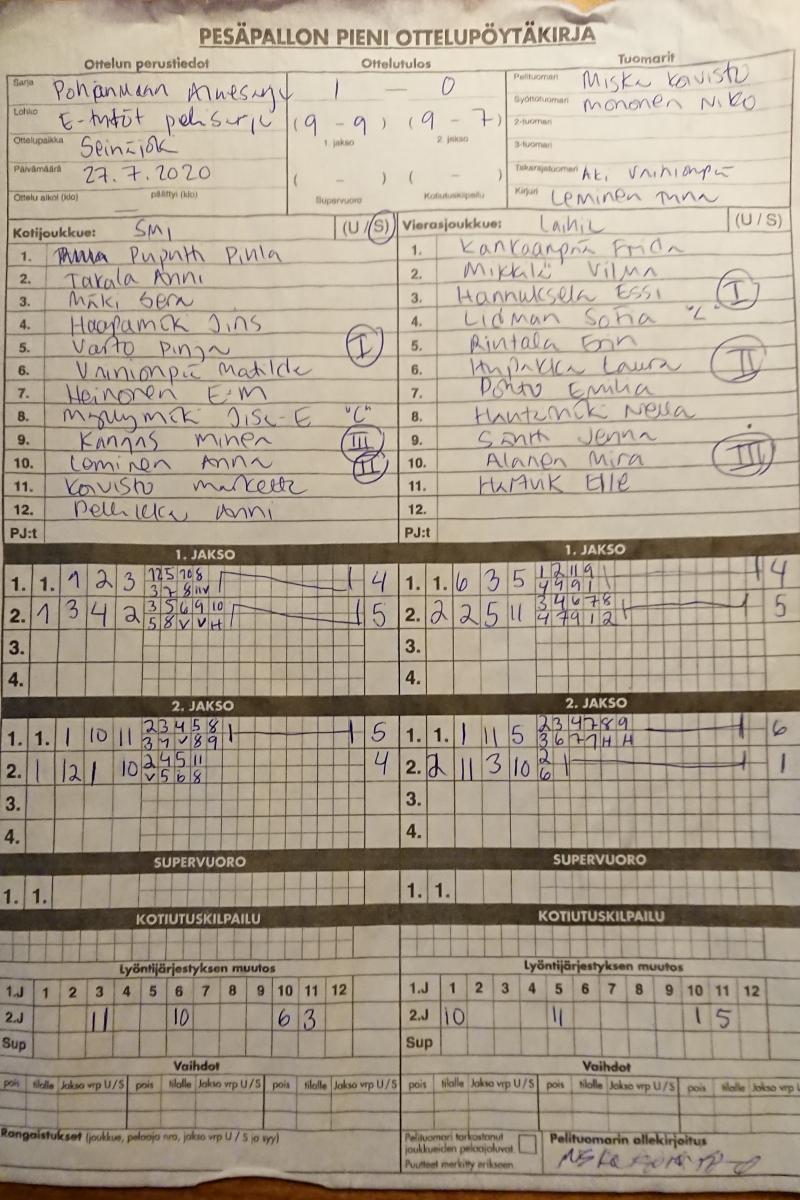 PESÄPALLON PIENI OTTELUPÖYTÄKIRJA
Ottelun perustiedot Ottelutulos Tuomarit
Sarja Pohjanmaan 1 — 0 Pelituomari Miska Koivisto
Lohko E-tytöt (9 - 9) (9 - 7) Syöttötuomari Mononen Niko
1. jakso 2. jakso 2-tuomari
Ottelupaikka Seinäjok 3-tuomari
Päivämäärä 27.7.2020 ( - ) ( - ) Takarajatuomari
Ottelu alkoi (klo) päättyi (klo) Supervuoro Kotiutuskilpailu Kirjuri Leminen
Kotijoukkue: SMJ (U / S) Vierasjoukkue: Laihia (U / S)
1. Pupunth 1. Kankaanpää Frida
2. Takala Anni 2. Mikkilä Vilma
3. Mäki Sera 3. Hannuksela Essi I
4. Haapamäk Iins 4. Lidman Sofia "C"
5. Varto Pinja I 5. Rintala Erin
6. Vainionpää Matilda 6. Laura II
7. Heinonen E-M 7. Pohto Emilia
8. "C" 8. Nella
9. Kangas Minea III 9. Jenna
10. Leminen Anna II 10. Alanen Mira III
11. Koivisto 11. Elle
12. Anni 12.
PJ:t PJ:t
1. JAKSO 1. JAKSO
1. 1. 1 2 3 4 1. 1. 6 3 5 4
2. 1 3 4 2 3 5 6 9 10 5 2. 2 2 5 11 3 4 6 7 8 5
5 8 V V H 4 7 9 1 2
3. 3.
4. 4.
2. JAKSO 2. JAKSO
1. 1. 1 10 11 2 3 4 5 8 5 1. 1. 1 11 5 2 3 4 7 8 9 6
3 4 V 8 9 3 6 7 7 H H
2. 1 12 1 10 2 4 5 11 4 2. 2 11 3 10 2 1
V 5 6 8 6
3. 3.
4. 4.
SUPERVUORO SUPERVUORO
1. 1. 1. 1.
KOTIUTUSKILPAILU KOTIUTUSKILPAILU
Lyöntijärjestyksen muutos Lyöntijärjestyksen muutos
1.J 1 2 3 4 5 6 7 8 9 10 11 12 1.J 1 2 3 4 5 6 7 8 9 10 11 12
2.J 11 10 6 3 2.J 10 11 1 5
Sup Sup
Vaihdot Vaihdot
pois tilalle Jakso vrp U / S pois tilalle Jakso vrp U / S pois tilalle Jakso vrp U / S pois tilalle Jakso vrp U / S pois tilalle Jakso vrp U / S pois tilalle Jakso vrp U
Rangaistukset (joukkue, pelaaja nro, jakso vrp U / S ja syy) Pelituomari tarkastanut Pelituomarin allekirjoitus
joukkueiden pelaajaluvat.
Puutteet merkitty erikseen.